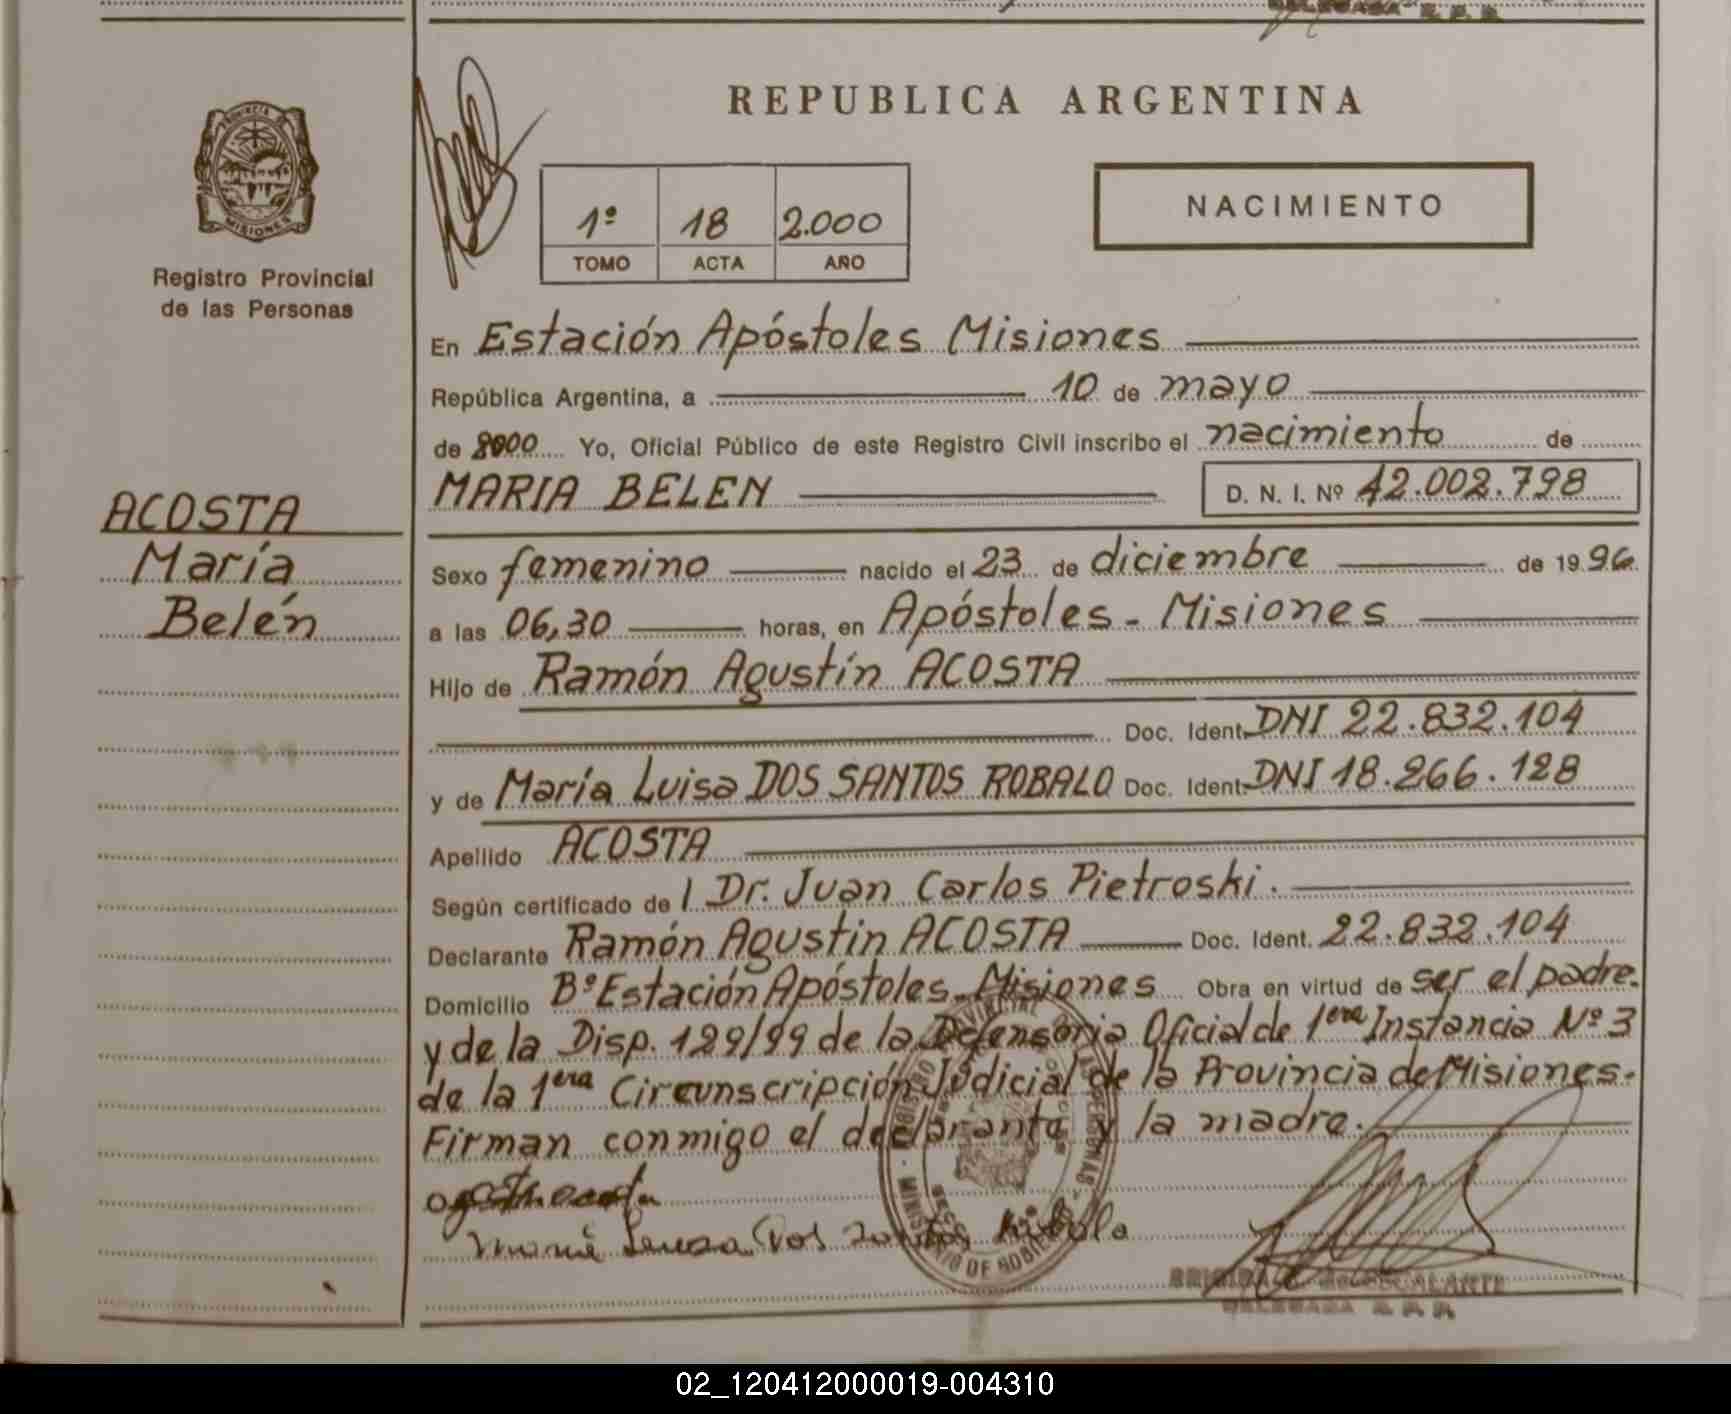 DELEGADA R. P. P.
REPUBLICA ARGENTINA
PROVINCIA
MISIONES
Registro Provincial
de las Personas
1º 18 2.000
TOMO ACTA AÑO
NACIMIENTO
En Estación Apóstoles Misiones
República Argentina, a 10 de mayo
de 2000 Yo, Oficial Público de este Registro Civil inscribo el nacimiento de
MARIA BELEN D. N. I. Nº 42.002.798
ACOSTA
María
Belén
Sexo femenino nacido el 23 de diciembre de 1996
a las 06,30 horas, en Apóstoles - Misiones
Hijo de Ramón Agustín ACOSTA
Doc. Ident. DNI 22.832.104
y de María Luisa DOS SANTOS ROBALO Doc. Ident. DNI 18.266.128
Apellido ACOSTA
Según certificado de l Dr. Juan Carlos Pietroski.
Declarante Ramón Agustin ACOSTA Doc. Ident. 22.832.104
Domicilio Bº Estación Apóstoles - Misiones Obra en virtud de ser el padre.
y de la Disp. 129/99 de la Defensoria Oficial de 1era Instancia Nº 3
de la 1era Circunscripción Judicial de la Provincia de Misiones.
Firman conmigo el declarante y la madre.
DELEGADA R. P. P.
02_120412000019-004310